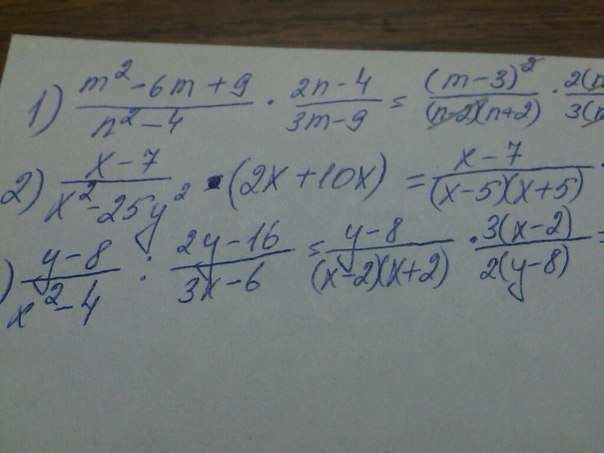 1) (m² - 6m + 9)/(n² - 4) · (2n - 4)/(3m - 9) = (m - 3)²/((n - 2)(n + 2)) · 2(n/3(
2) (x - 7)/(x² - 25y²) · (2x + 10x) = (x - 7)/((x - 5)(x + 5)) ·
) (y - 8)/(x² - 4) : (2y - 16)/(3x - 6) = (y - 8)/((x - 2)(x + 2)) · 3(x - 2)/(2(y - 8)) =